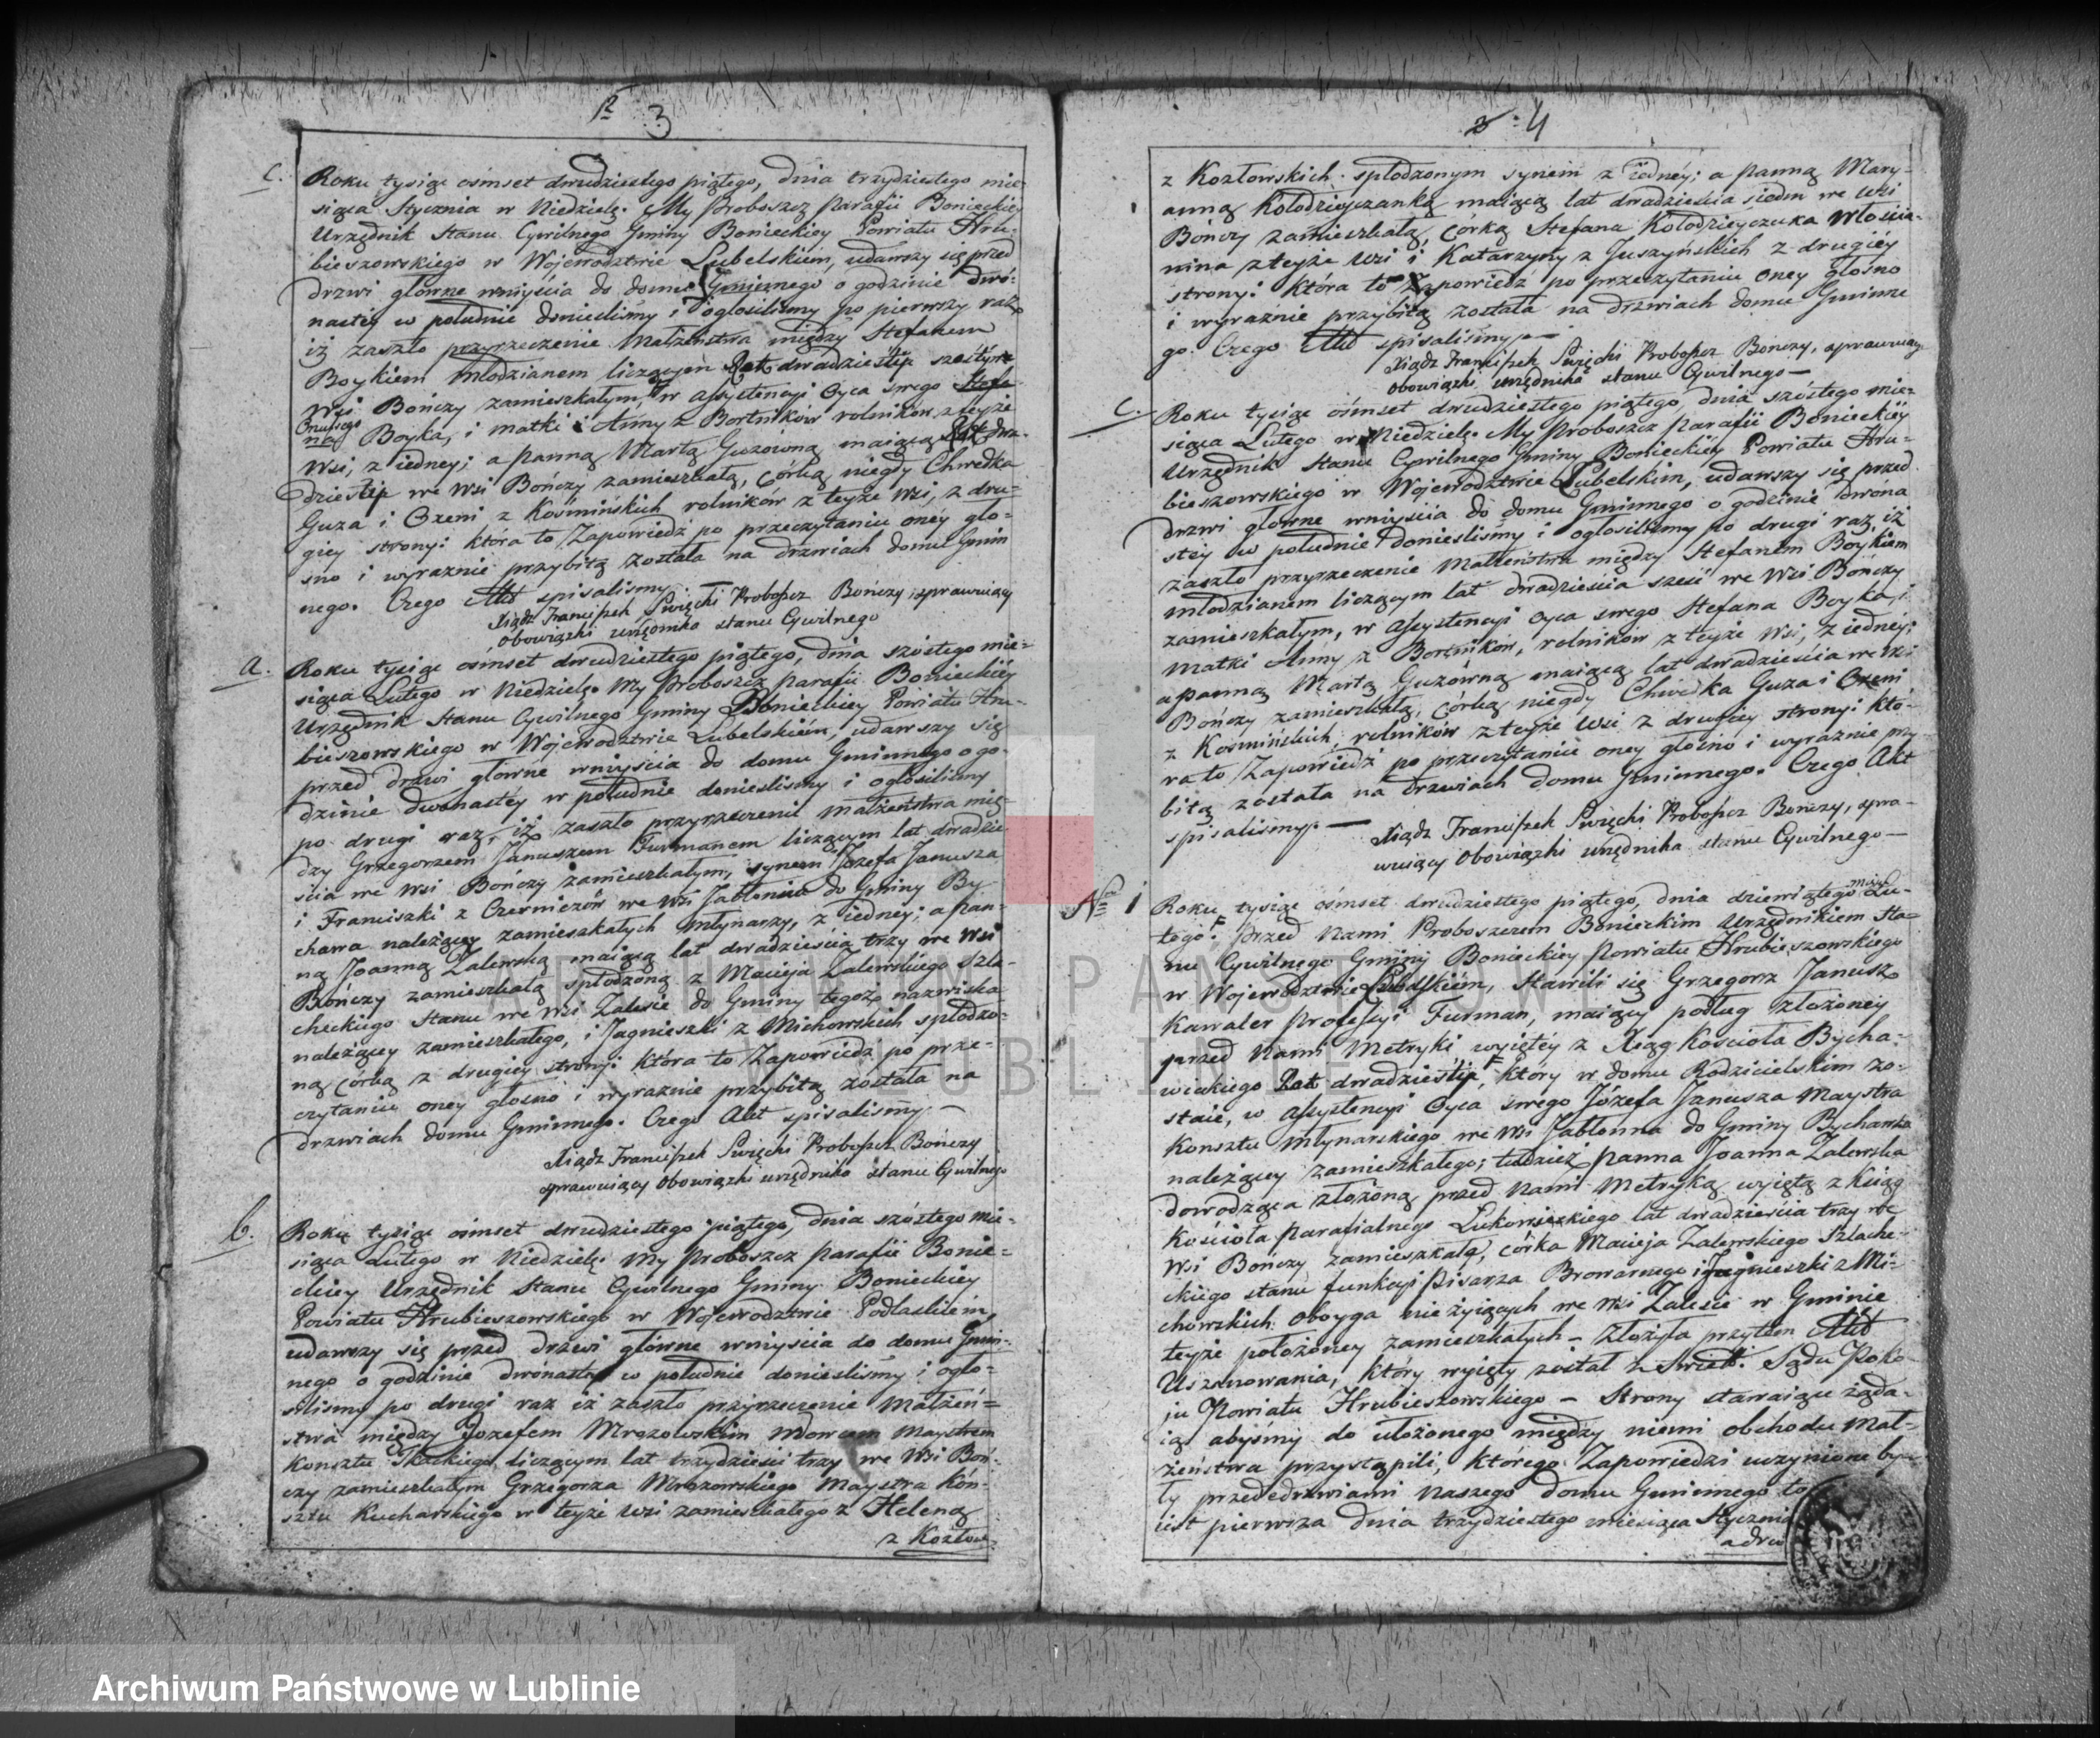 2 3
C. Roku tysiąc ośmset dwudziestego piątego, dnia trzydziestego mie-
siąca Stycznia w Niedzielę. My Proboszcz Parafii Bonieckiey
Urzędnik Stanu Cywilnego Gminy Bonieckiey Powiatu Hru-
bieszowskiego w Wojewodztwie Lubelskiem, udawszy się przed
drzwi główne wniyścia do domu Gminnego o godzinie dwó-
nastey w południe donieśliśmy i ogłosiliśmy po pierwszy raz
iż zaszło przyrzeczenie Małżeństwa między Stefanem
Boykiem Młodzianem liczącym lat dwadzieścia sześć we
Wsi Bończy zamieszkałym, w assystencyi Oyca swego Stefa-
na Boyka, i matki Anny z Bortników rolników z teyże
Wsi, z iedney; a panną Martą Guzowną maiącą lat dwa-
dzieścia we Wsi Bończy zamieszkałą, córką niegdy Chwedka
Guza i Oxeni z Kośmińskich rolników z teyże wsi, z dru-
giey strony: która to Zapowiedź po przeczytaniu oney gło-
śno i wyraznie przybitą została na drzwiach domu Gmin
nego. Czego Akt spisaliśmy. —
Xiądz Franciszek Święcki Proboszcz Bończy, sprawuiący
obowiązki urzędnika stanu Cywilnego
a. Roku tysiąc ośmset dwudziestego piątego, dnia szóstego mie-
siąca Lutego w Niedzielę. My Proboszcz Parafii Bonieckiey
Urzędnik Stanu Cywilnego Gminy Bonieckiey Powiatu Hru-
bieszowskiego w Wojewodztwie Lubelskiém, udawszy się
przed drzwi główne wniyścia do domu Gminnego o go-
dzinie dwonastéy w południe donieslismy i ogłosiliśmy
po drugi raz, iż zaszło przyrzeczenie Małżeństwa mię-
dzy Grzegorzem Januszem Furmanem liczącym lat dwadzie-
ścia we wsi Bończy zamieszkałym, synem Józefa Janusza
i Franciszki z Czerniczów we wsi Jabłonna do Gminy By-
chawa należącey zamieszkałych Młynarzy, z iedney; a pan-
ną Joanną Zalewską maiącą lat dwadzieścia trzy we wsi
Bończy zamieszkałą spłodzoną z Macieja Zalewskiego Szla-
checkiego Stanu we wsi Zalesie do Gminy tegoż nazwiska
należącey zamieszkałego, i Jagnieszki z Michowskich spłodzo-
ną córką z drugiey strony: która to Zapowiedz po prze-
czytaniu oney głośno i wyraznie przybitą została na
drzwiach domu Gminnego. Czego Akt spisaliśmy. —
Xiądz Franciszek Święcki Proboszcz Bończy
sprawuiący obowiązki urzędnika stanu Cywilnego
b. Roku tysiąc ośmset dwudziestego piątego, dnia szóstego mie-
siąca Lutego w Niedzielę. My Proboszcz Parafii Bonie-
ckiey Urzędnik Stanu Cywilnego Gminy Bonieckiey
Powiatu Hrubieszowskiego w Wojewodztwie Podlaskiem,
udawszy się przed drzwi główne wniyścia do domu Gmin-
nego o godzinie dwónastey w południe donieśliśmy i ogło-
siliśmy po drugi raz iż zaszło przyrzeczenie Małżeń-
stwa między Józefem Mrozowskim Wdowcem Maystrem
Konsztu Tkackiego liczącym lat trzydzieści trzy we Wsi Boń-
czy zamieszkałym Grzegorza Mrozowskiego Maystra kón-
sztu Kucharskiego w teyże wsi zamieszkałego z Heleną
z Kozłow-
3 4
z Kozłowskich spłodzonym synem z iednéy; a panną Mary-
anną Kołodzieyczanką maiącą lat dwadzieścia siedm we wsi
Bończy zamieszkałą, córką Stefana Kołodzieyczuka Włościa-
nina z teyże wsi i Katarzyny z Juszyńskich z drugiéy
strony: która to Zapowiedź po przeczytaniu oney głosno
i wyraźnie przybitą została na drzwiach domu Gminne
go. Czego Akt spisaliśmy. —
Xiądz Franciszek Święcki Proboszcz Bończy, sprawuiący
obowiązki urzędnika stanu Cywilnego —
C. Roku tysiąc ośmset dwudziestego piątego, dnia szóstego mie-
siąca Lutego w Niedzielę. My Proboszcz Parafii Bonieckiéy
Urzędnik Stanu Cywilnego Gminy Bonieckiéy Powiatu Hru-
bieszowskiego w Wojewodztwie Lubelskim, udawszy się przed
drzwi główne wniyścia do domu Gminnego o godzinie dwóna
stéy w południe donieśliśmy i ogłosiliśmy po drugi raz, iż
zaszło przyrzeczenie Małżeństwa między Stefanem Boykiem
młodzianem liczącym lat dwadzieścia sześć we Wsi Bończy
zamieszkałym, w assystencyi Oyca swego Stefana Boyka, i
Matki Anny z Bortników, rolników z teyże Wsi, z iedney;
a panną Martą Guzówną maiącą lat dwadzieścia we Wsi
Bończy zamieszkałą, córką niegdy Chwedka Guza i Oxeni
z Kosmińskich, rolników z teyże Wsi z drugiey strony: któ-
ra to Zapowiedź po przeczytaniu oney głośno i wyraznie przy
bitą została na drzwiach domu Gminnego. Czego Akt
spisaliśmy. — Xiądz Franciszek Święcki Proboszcz Bończy, spra-
wuiący obowiązki urzędnika stanu Cywilnego —
No 1 Roku tysiąc ośmset dwudziestego piątego, dnia dziewiątego Lu-
tego. Przed Nami Proboszczem Bonieckim Urzędnikiem Sta-
nu Cywilnego Gminy Bonieckiey Powiatu Hrubieszowskiego
w Wojewodztwie Lubelskiém, Stawili się Grzegorz Janusz
Kawaler professyi Furman, maiący podług złożoney
przed Nami Metryki wyiętéy z Xiąg Kościoła Bycha-
wskiego Lat dwadzieścia, który w domu Rodzicielskim zo-
staie, w assystencyi Oyca swego Józefa Janusza Maystra
Konsztu Młynarskiego we wsi Jabłonna do Gminy Bychawka
należącey zamieszkałego; tudzież Panna Joanna Zalewska
dowodząca złożoną przed Nami Metryką wyiętą z Xiąg
Kościoła Parafialnego lat dwadzieścia trzy we
Wsi Bończy zamieszkała, córka Macieja Zalewskiego Szlache-
ckiego stanu funkcyi Pisarza Browarnego i Jagnieszki z Mi-
chowskich oboyga nieżyiących we Wsi Zalesie w Gminie
teyże położoney zamieszkałych — Złożyła przytém Akt
Uszanowania, który wyięty został z Sądu Poko-
ju Powiatu Hrubieszowskiego — Strony stawaiące żąda-
ią abyśmy do ułożonego między niemi obchodu Mał-
żeństwa przystąpili, którego Zapowiedzi uczynione by-
ły przededrzwiami Naszego domu Gminnego to
iest pierwsza dnia trzydziestego miesiąca Stycznia
a dru
ARCHIWUM PAŃSTWOWE
W LUBLINIE
Archiwum Państwowe w Lublinie